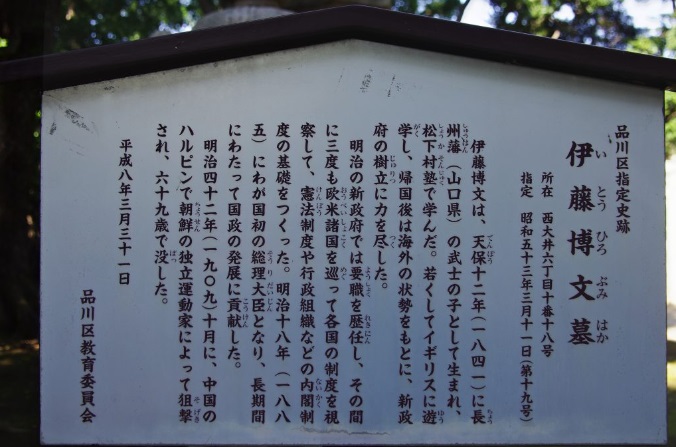 品川区指定史跡
伊藤博文墓
いとうひろぶみはか
所在 西大井六丁目十番十八号
指定 昭和五十三年三月十一日(第十九号)
伊藤博文は、天保十二年(一八四一)に長
州藩(山口県)の武士の子として生まれ、
松下村塾で学んだ。若くしてイギリスに遊
学し、帰国後は海外の状勢をもとに、新政
府の樹立に力を尽した。
明治の新政府では要職を歴任し、その間
に三度も欧米諸国を巡って各国の制度を視
察して、憲法制度や行政組織などの内閣制
度の基礎をつくった。明治十八年(一八八
五)にわが国初の総理大臣となり、長期間
にわたって国政の発展に貢献した。
明治四十二年(一九〇九)十月に、中国の
ハルピンで朝鮮の独立運動家によって狙撃
され、六十九歳で没した。
平成八年三月三十一日
品川区教育委員会